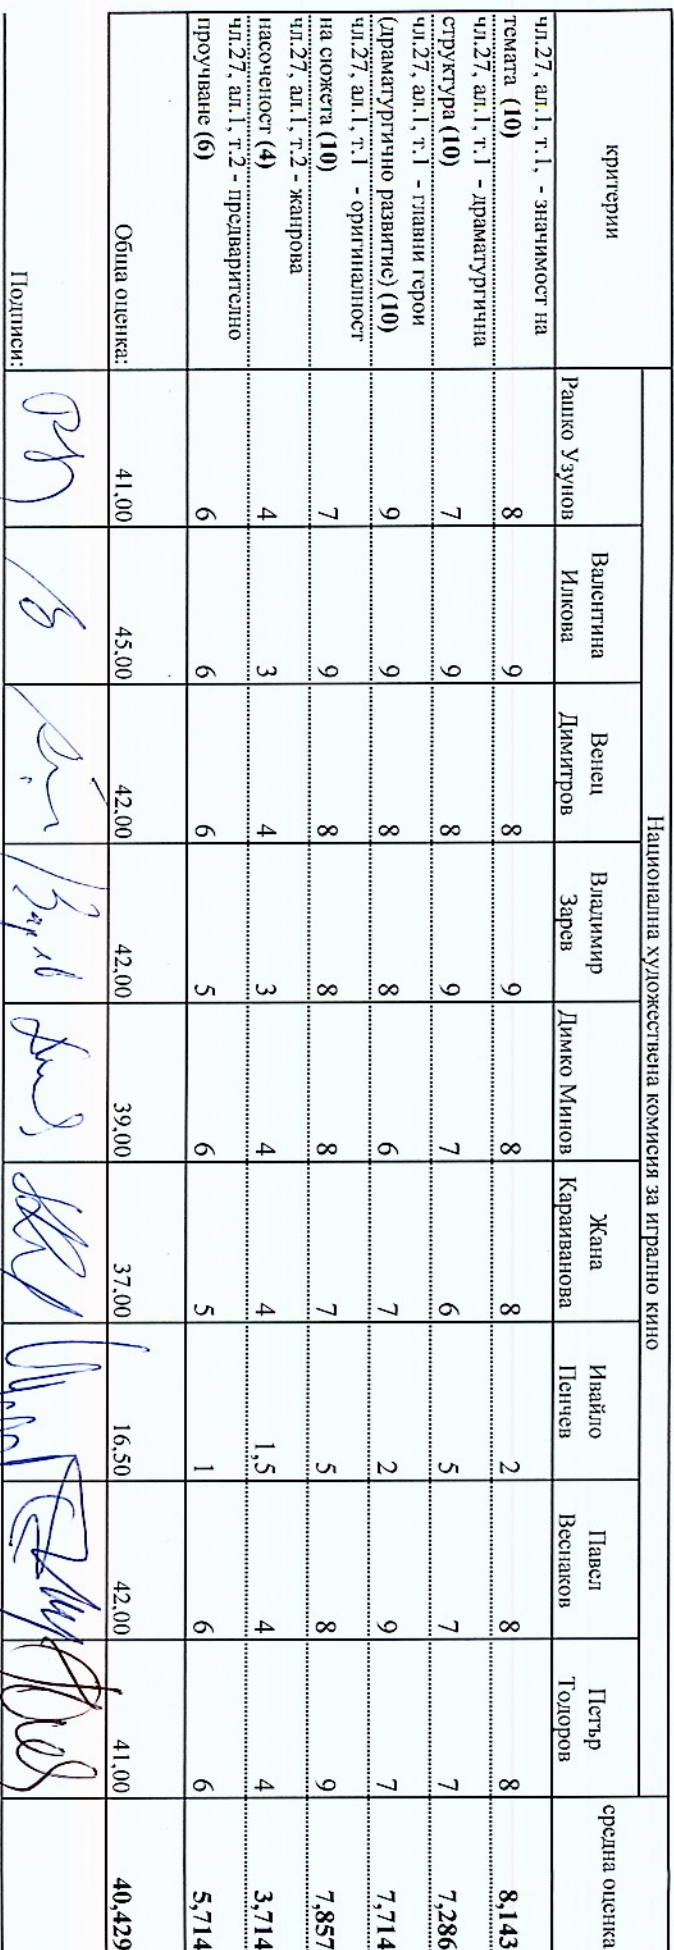 Национална художествена комисия за игрално кино
критерии Рашко Узунов Валентина Илкова Венец Димитров Владимир Зарев Димко Минов Жана Караиванова Ивайло Пенчев Павел Веснаков Петър Тодоров средна оценка
чл.27, ал.1, т.1, - значимост на
темата (10) 8 9 8 9 8 8 2 8 8 8,143
чл.27, ал.1, т.1 - драматургична
структура (10) 7 9 8 9 7 6 5 7 7 7,286
чл.27, ал.1, т.1 - главни герои
(драматургично развитие) (10) 9 9 8 8 6 7 2 9 7 7,714
чл.27, ал.1, т.1 - оригиналност
на сюжета (10) 7 9 8 8 8 7 5 8 9 7,857
чл.27, ал.1, т.2 - жанрова
насоченост (4) 4 3 4 3 4 4 1,5 4 4 3,714
чл.27, ал.1, т.2 - предварително
проучване (6) 6 6 6 5 6 5 1 6 6 5,714
Обща оценка: 41,00 45,00 42,00 42,00 39,00 37,00 16,50 42,00 41,00 40,429
Подписи: